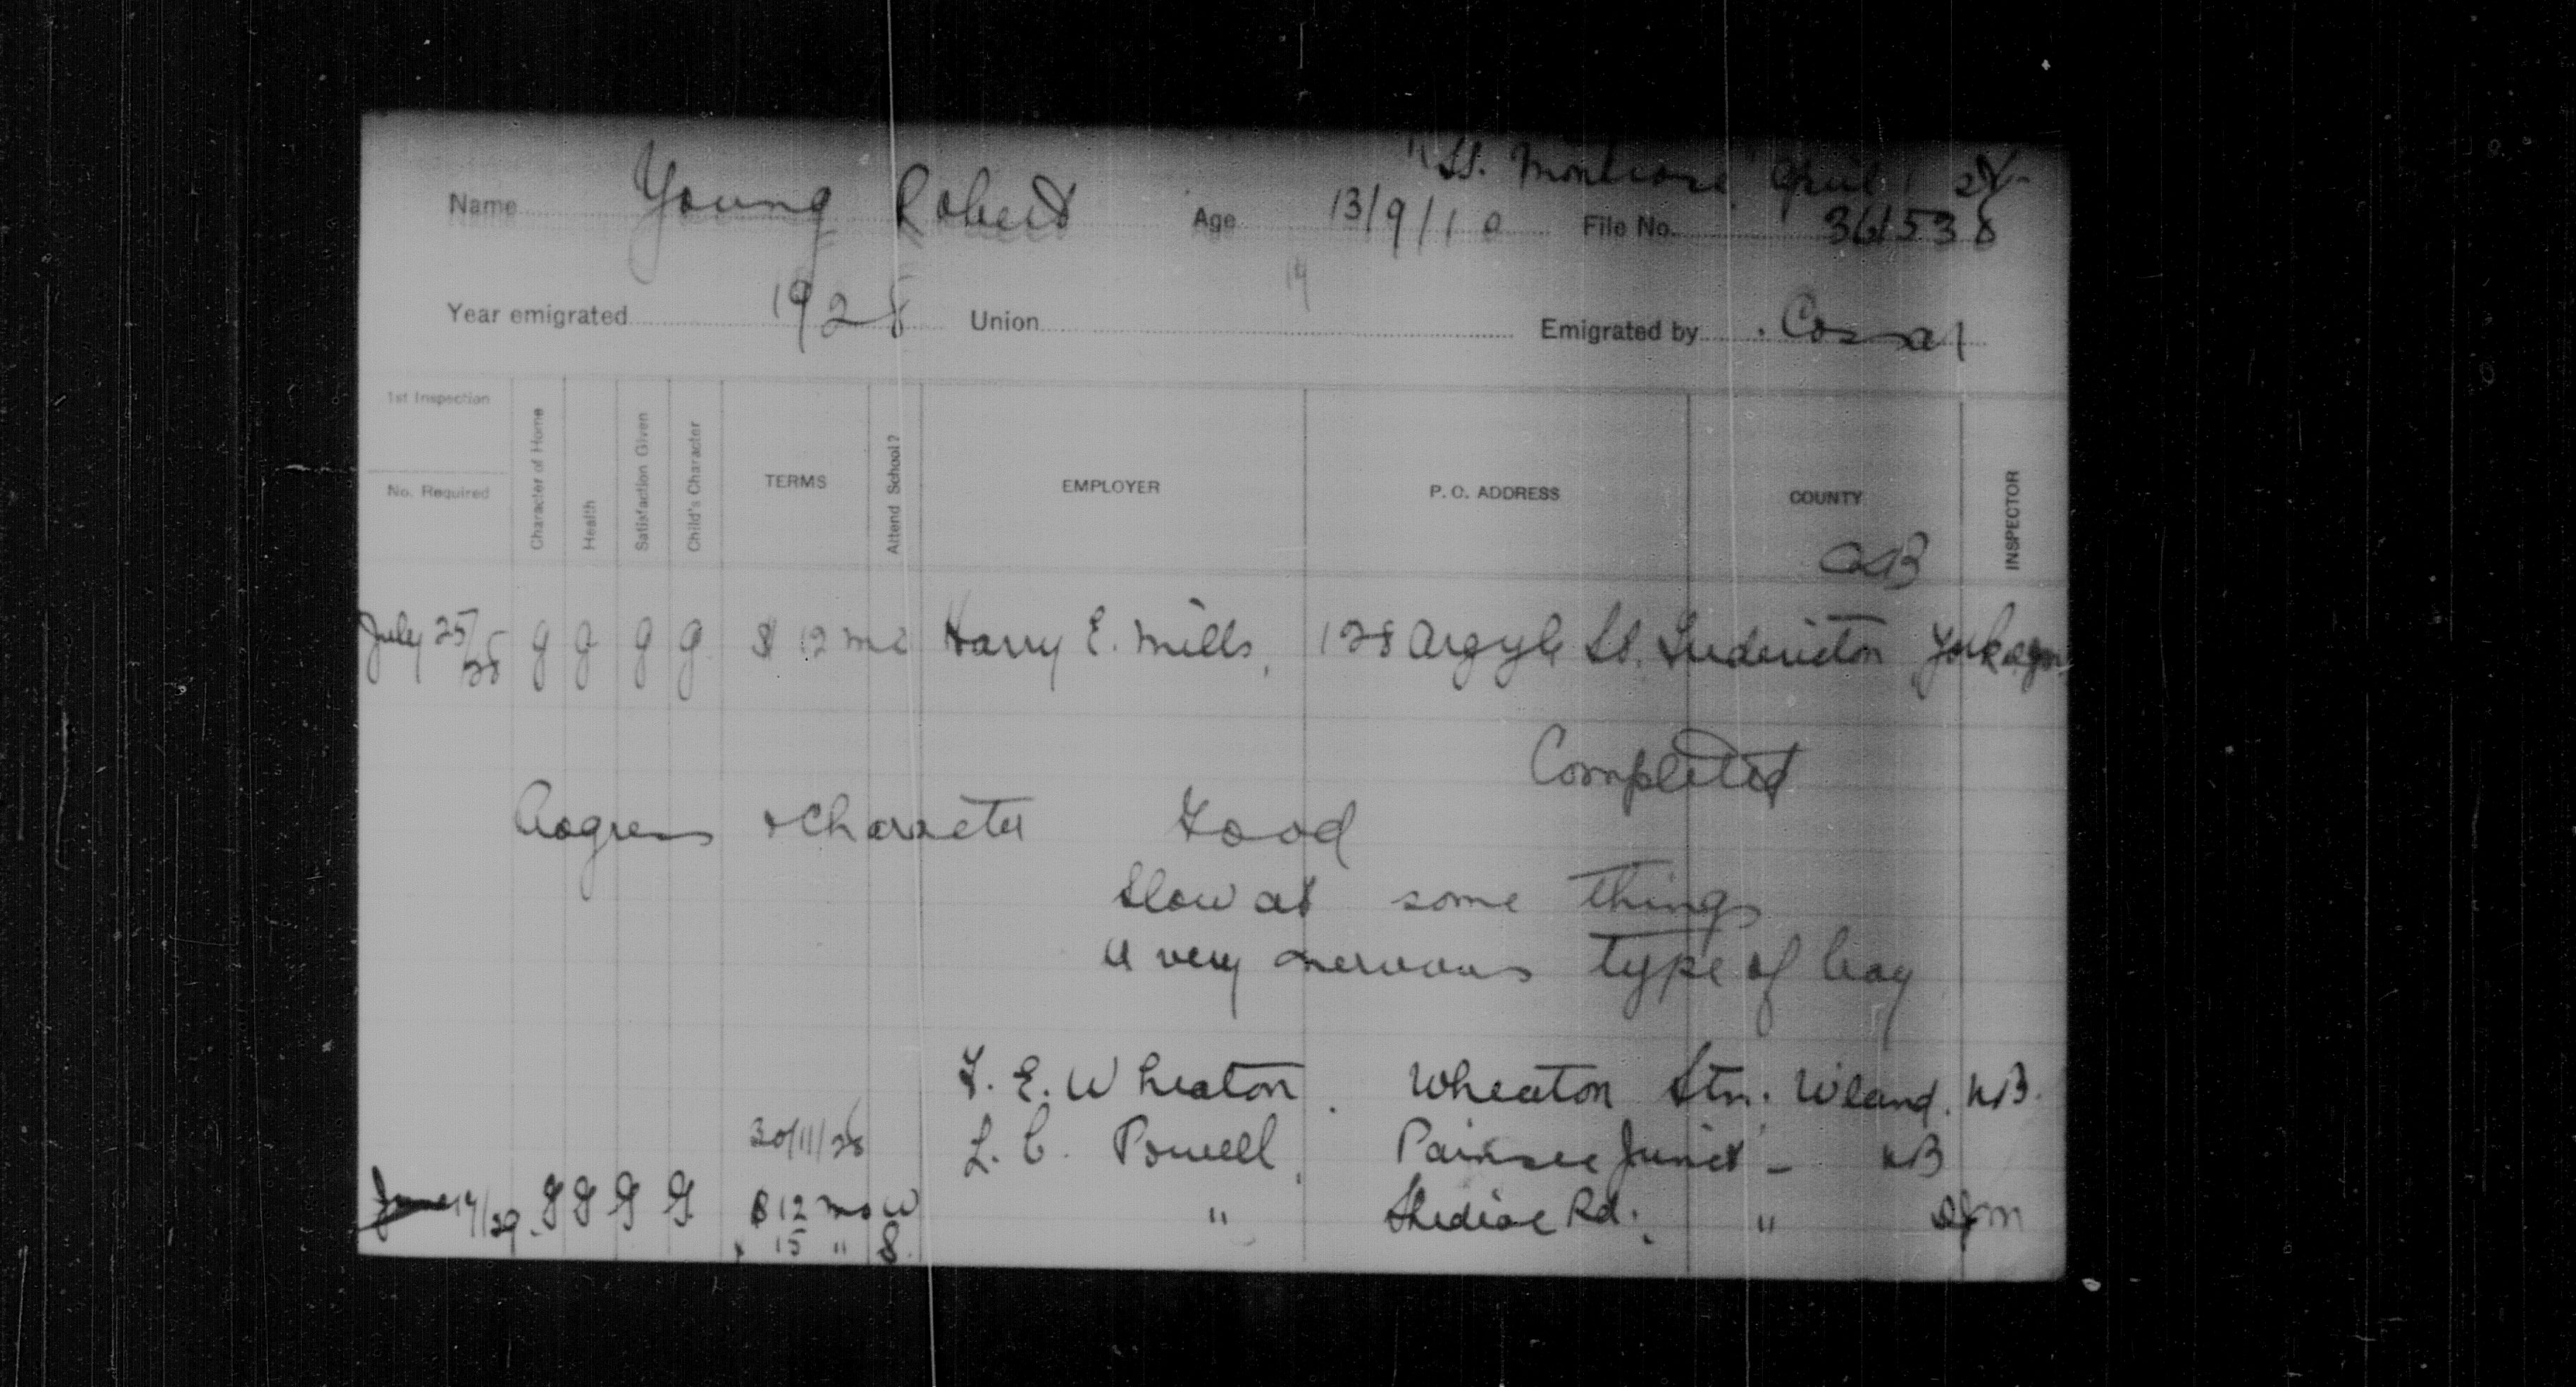 "SS. Montrose" April 1 28
Name Young Robert Age 13/9/10 File No. 361538
14
Year emigrated 1928 Union Emigrated by Cossar
1st Inspection
No. Required
Character of Home
Health
Satisfaction Given
Child's Character
TERMS
Attend School?
EMPLOYER
P. O. ADDRESS
COUNTY
INSPECTOR
July 25/28 g g g g $ 12 mo Harry E. Mills, 128 Argyle St. Fredericton York
Completed
Progress & Character Good
Slow at some things
A very nervous type of boy
F. E. Wheaton. Wheaton Stn. W'land. NB.
30/11/28 L. C. Powell, Painsec Junct - NB
June 14/29. G G G G $ 12 mo W " Shediac Rd. "
" 15 " S.